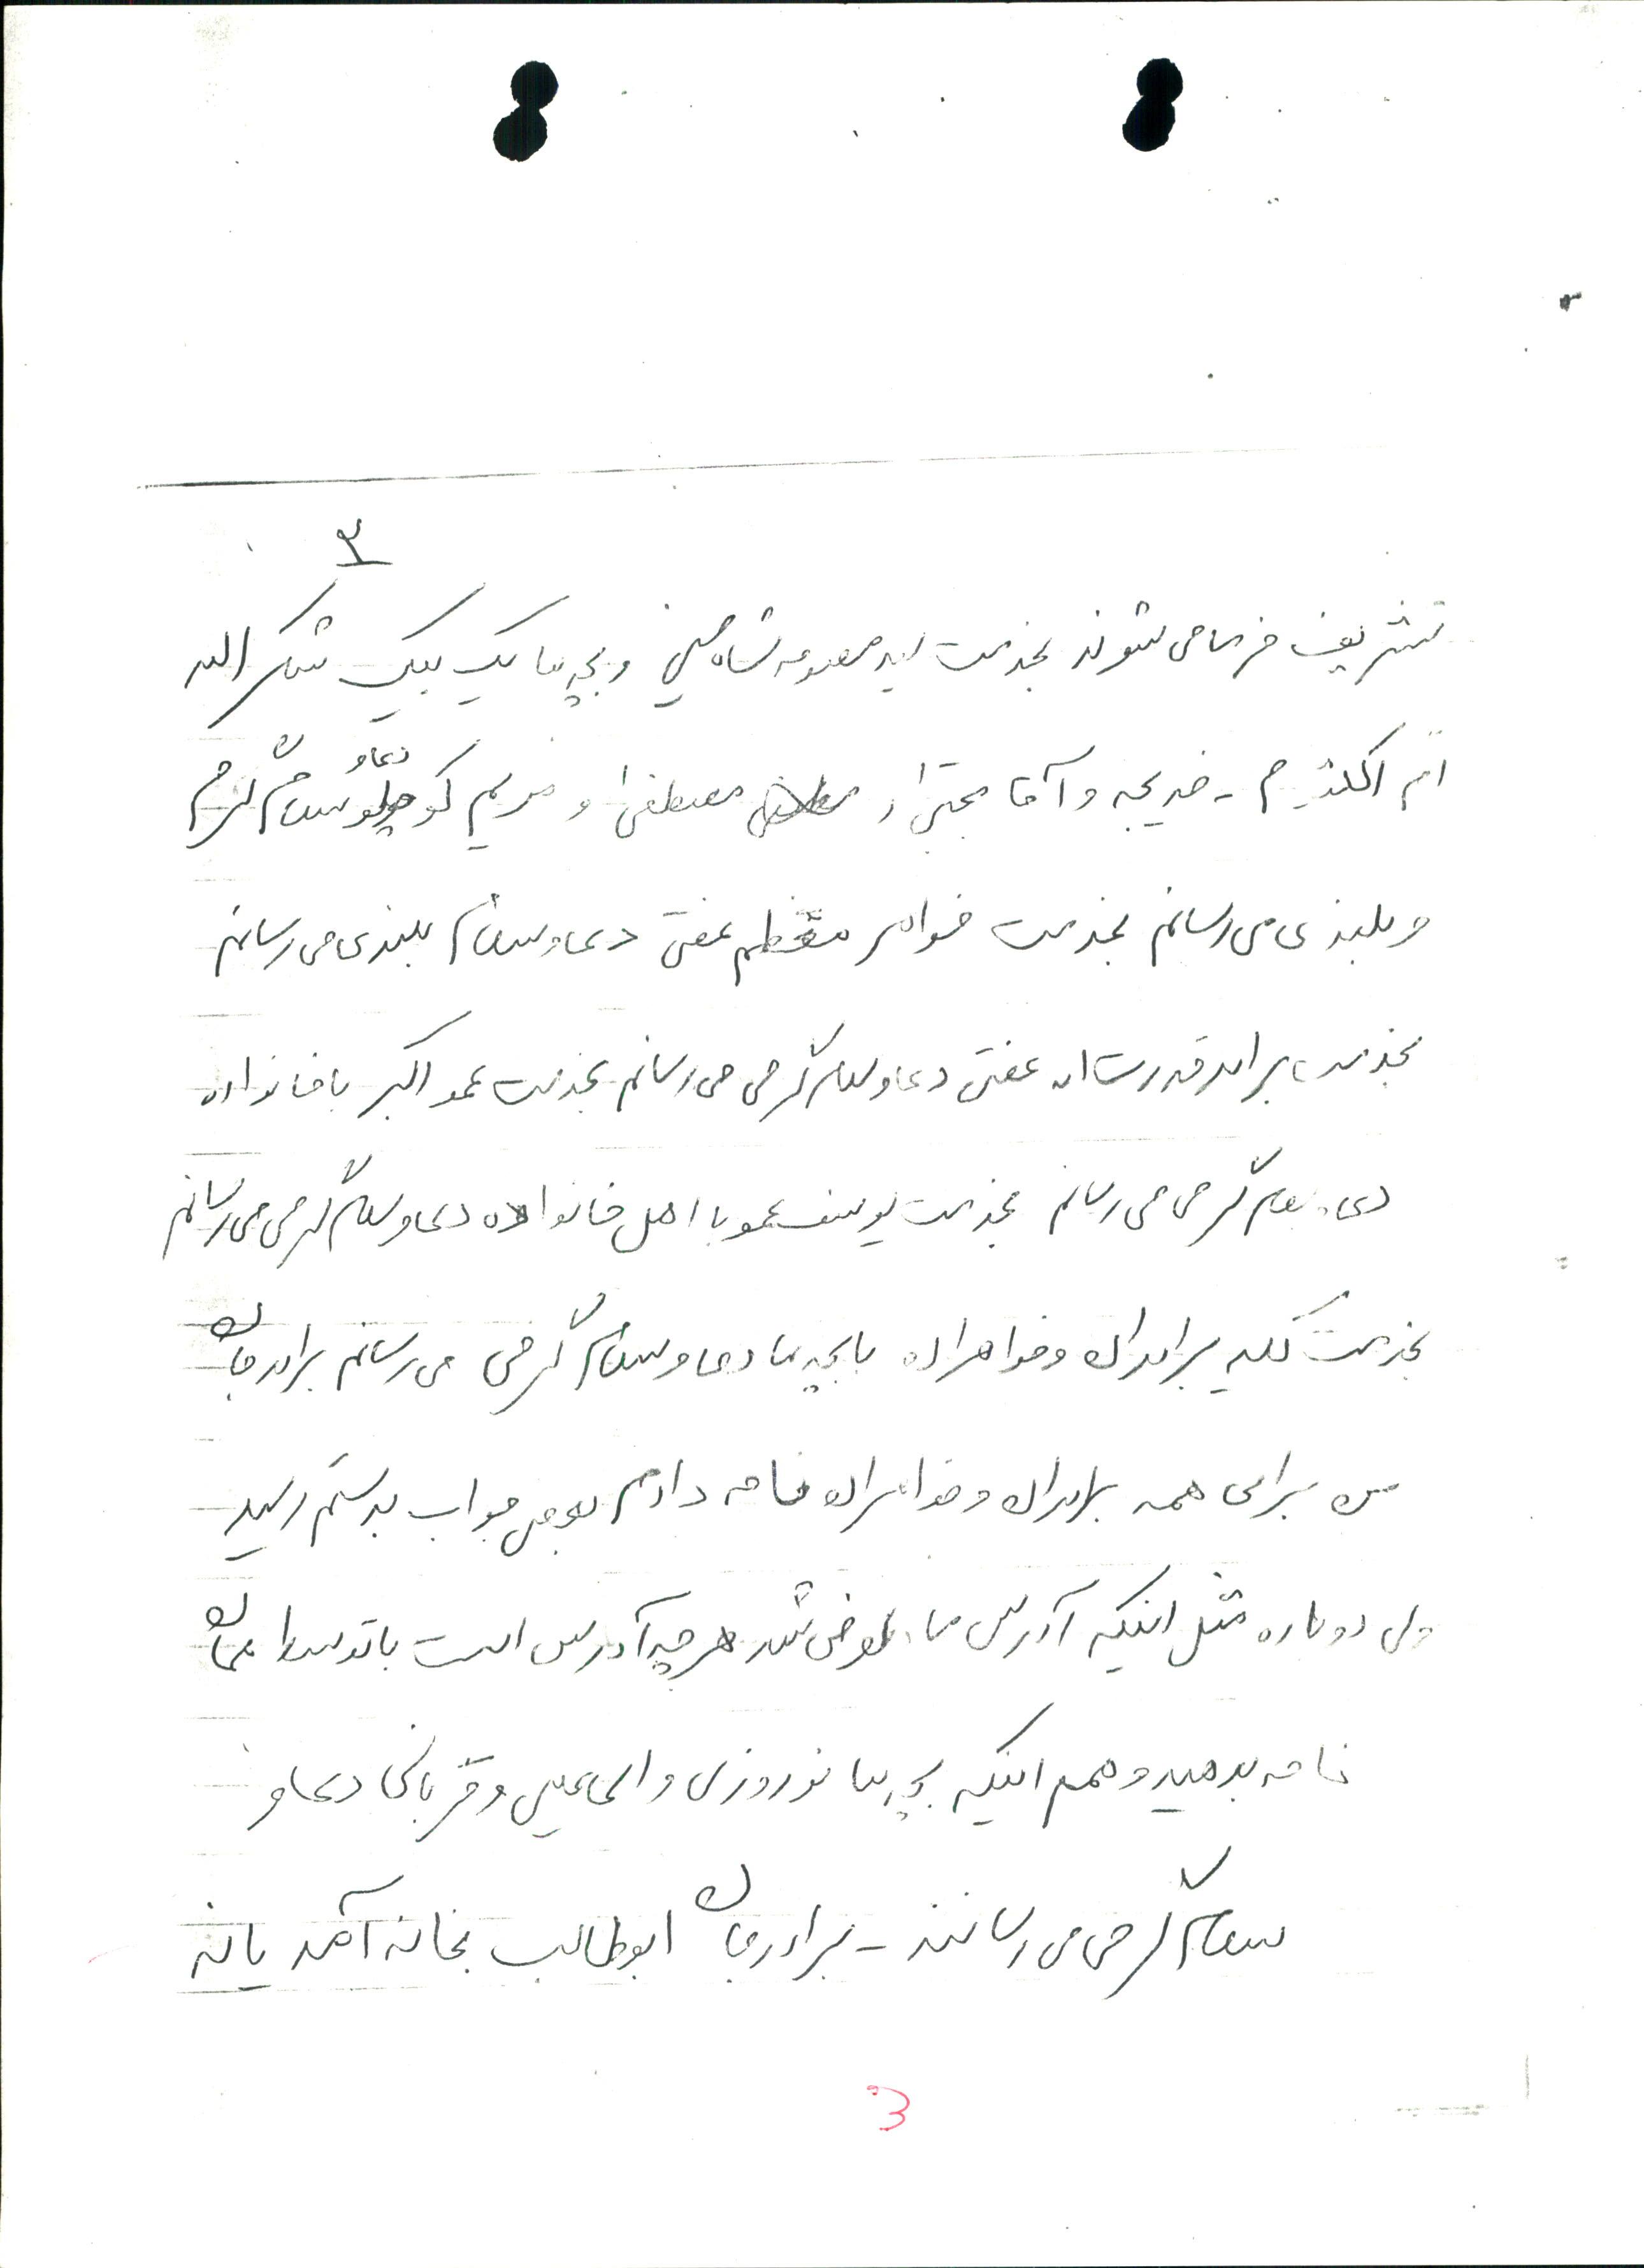 ۳
تشریف فرما می شوند بخدمت سید معصومه شاه حسینی و بچه ها یک بیک شکرالله
ام اکلثوم - خدیجه و آقا مجتبی او مصطفی و مریم کوچلو دعا و سلام گرم
و بلندی می رسانم بخدمت خواهر معظم عفتی دعا و سلام بلندی می رسانم
بخدمت برادر قدرت اله عفتی دعا و سلام گرمی می رسانم بخدمت عمو اکبر با خانواده
دعا و سلام گرمی می رسانم بخدمت یوسف عمو با اهل خانواده دعا و سلام گرمی می رسانم
بخدمت کلیه برادران و خواهران با بچه ها دعا و سلام گرمی می رسانم برادر جان
من برای همه برادران و خواهران نامه دادم بعضی جواب بدستم رسید
ولی دوباره مثل اینکه آدرس ما عوض شد هر چه آدرس است با توسط همان
نامه بدهید و همم اینکه بچه ها نوروزی و اسماعیلی و قربانی دعا و
سلام گرمی می رسانند - برادر جان ابوطالب بخانه آمد یا نه
3